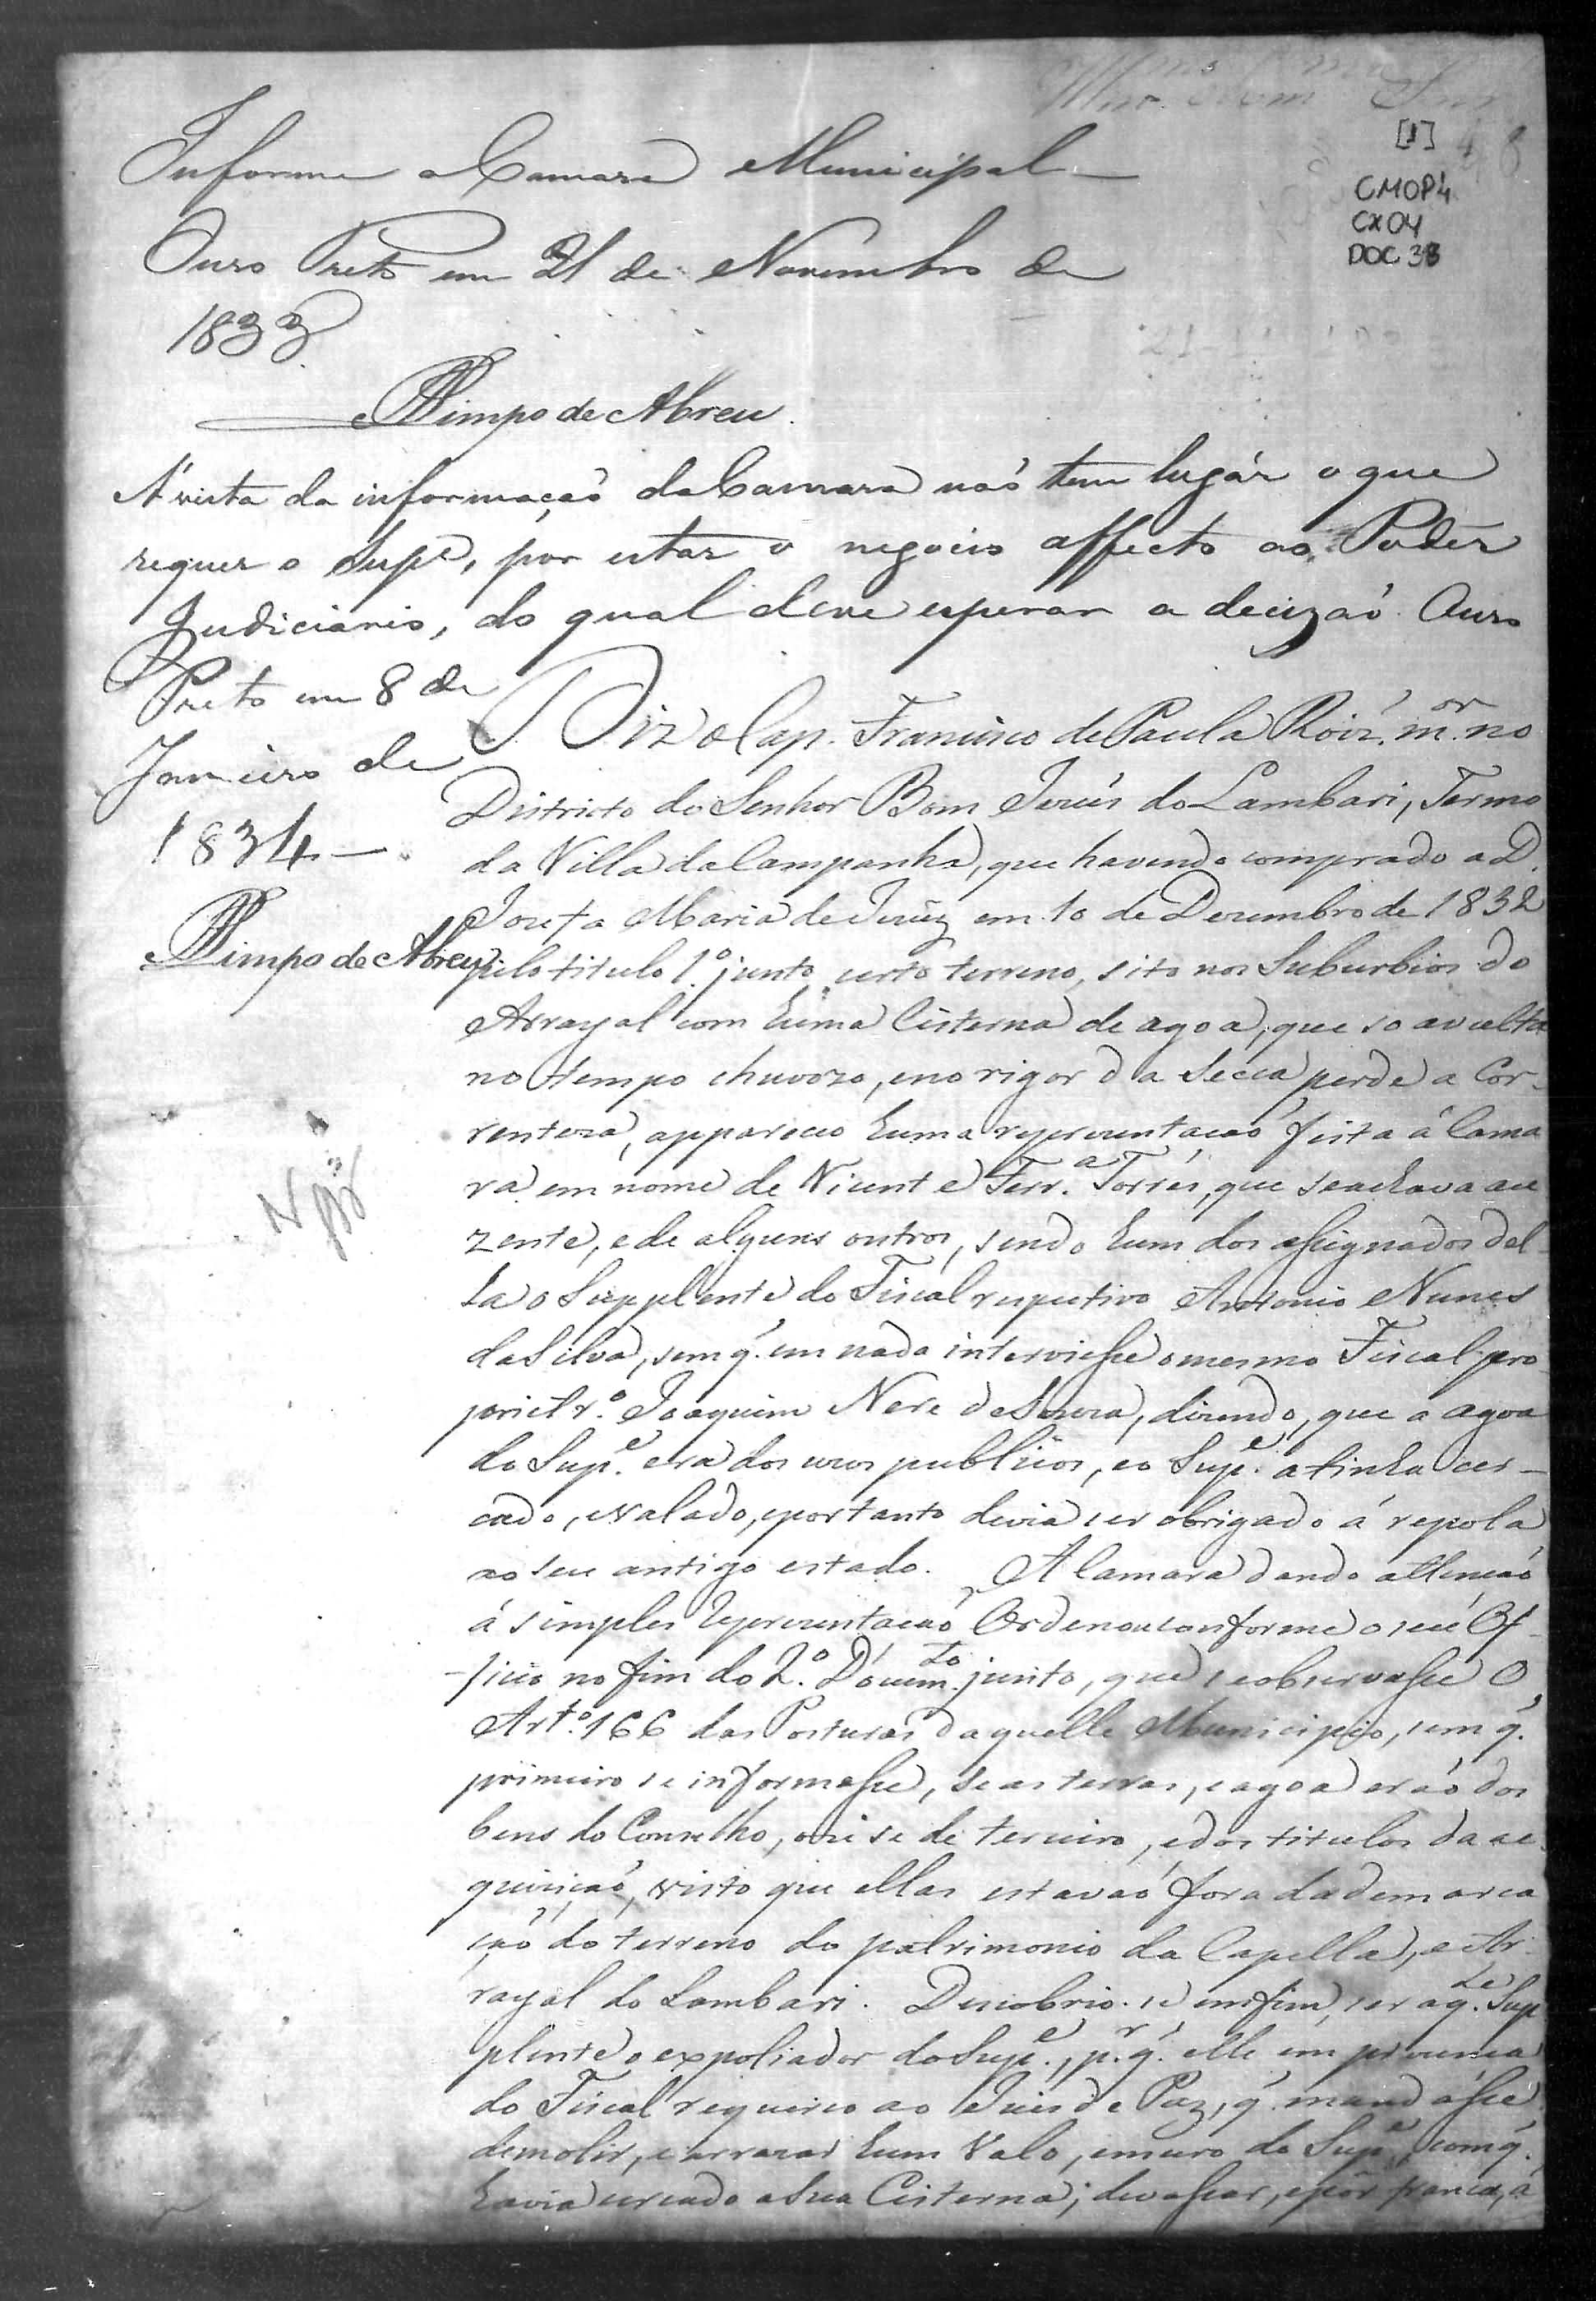 [1]
CMOP4
CX04
DOC 38
Informe a Camara Municipal
Ouro Preto em 21 de Novembro de
1833
Limpo de Abreu
Á vista da informação da Camara não tem lugár o que
requer o Supe, por estar o negocio affecto ao Poder
Judiciario, do qual deve esperar a decizaõ. Ouro
Preto em 8 de
Janeiro de
1834
Limpo de Abreu
Diz o Cap. Francisco de Paula Roiz, m.or no
Districto do Senhor Bom Jezús do Lambari, Termo
da Villa da Campanha, que havendo comprado a D.
Josefa Maria de Jezúz em 10 de Dezembro de 1832
pelo titulo 1.o junto, certo terreno, sito nos Suburbios do
Arrayal com huma Cisterna de agoa, que só avulta
no tempo chuvozo, e no rigor da Secca perde a Cor-
renteza, appareceo huma reprezentacaõ feita á Cama
ra em nome de Vicente Ferr.a Torres, que se achava au
zente, e de alguns outros, sendo hum dos assignados del-
la o Supplente do Fiscal respectivo Antonio Nunes
da Silva, sem q. em nada interviesse o mesmo Fiscal pro
prietr.o Joaquim Nere de Souza, dizendo, que a agoa
do Sup.e era dos uzos publicos, e o Sup.e a tinha cer-
cado, e valado, e portanto devia ser obrigado á repola
ao seu antigo estado. A Camara dando attencaõ
á simples reprezentacaõ Ordenou conforme o seu Of-
ficio no fim do 2.o Docum.to junto, que se observasse o
Art.o 166 das Posturas daquelle Municipio, sem q.
primeiro se informasse, se as terras, e agoa eraõ dos
bens do Conselho, ou se de terceiro, e dos titulos da ac
quisiçaõ, visto que ellas estavaõ fora da demarca
çaõ do terreno do patrimonio da Capella, e Ar-
rayal do Lambari. Descobrio-se em fim, ser aq.le Sup
plente o expoliador do Sup.e, p.r q. elle em prezença
do Fiscal requereo ao Juis de Paz, q. mandásse
demolir, e arrazar hum Valo, e muro do Sup.e, com q.
havia cercado a Sua Cisterna; devassar, e pôr franca, á